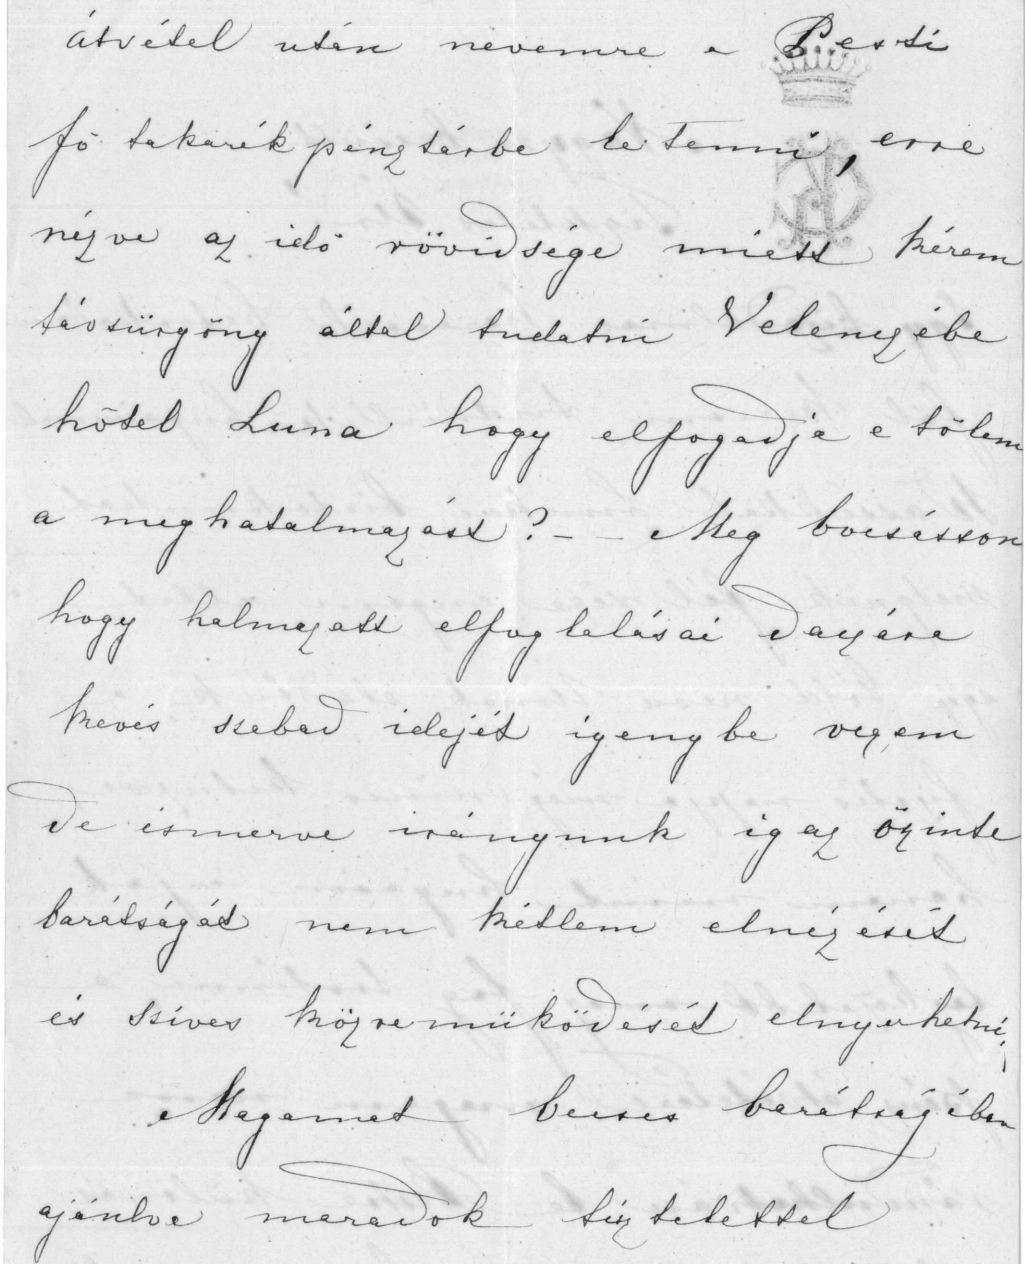 átvétel után nevemre a Pesti
fő takarék pénztárbe le tenni, erre
nézve az idő rövidsége miatt kérem
távsürgöny által tudatni Velenczébe
hôtel Luna hogy elfogadja e tőlem
a meghatalmazást? - - Meg bocsásson
hogy halmazatt elfoglalásai daczára
kevés szabad idejét igenybe veszem
de ismerve irányunk igaz őszinte
barátságát nem kétlem elnézését
és szíves közremüködését elnyerhetni,
Magamat becses barátságába
ajánlva maradok tisztelettel